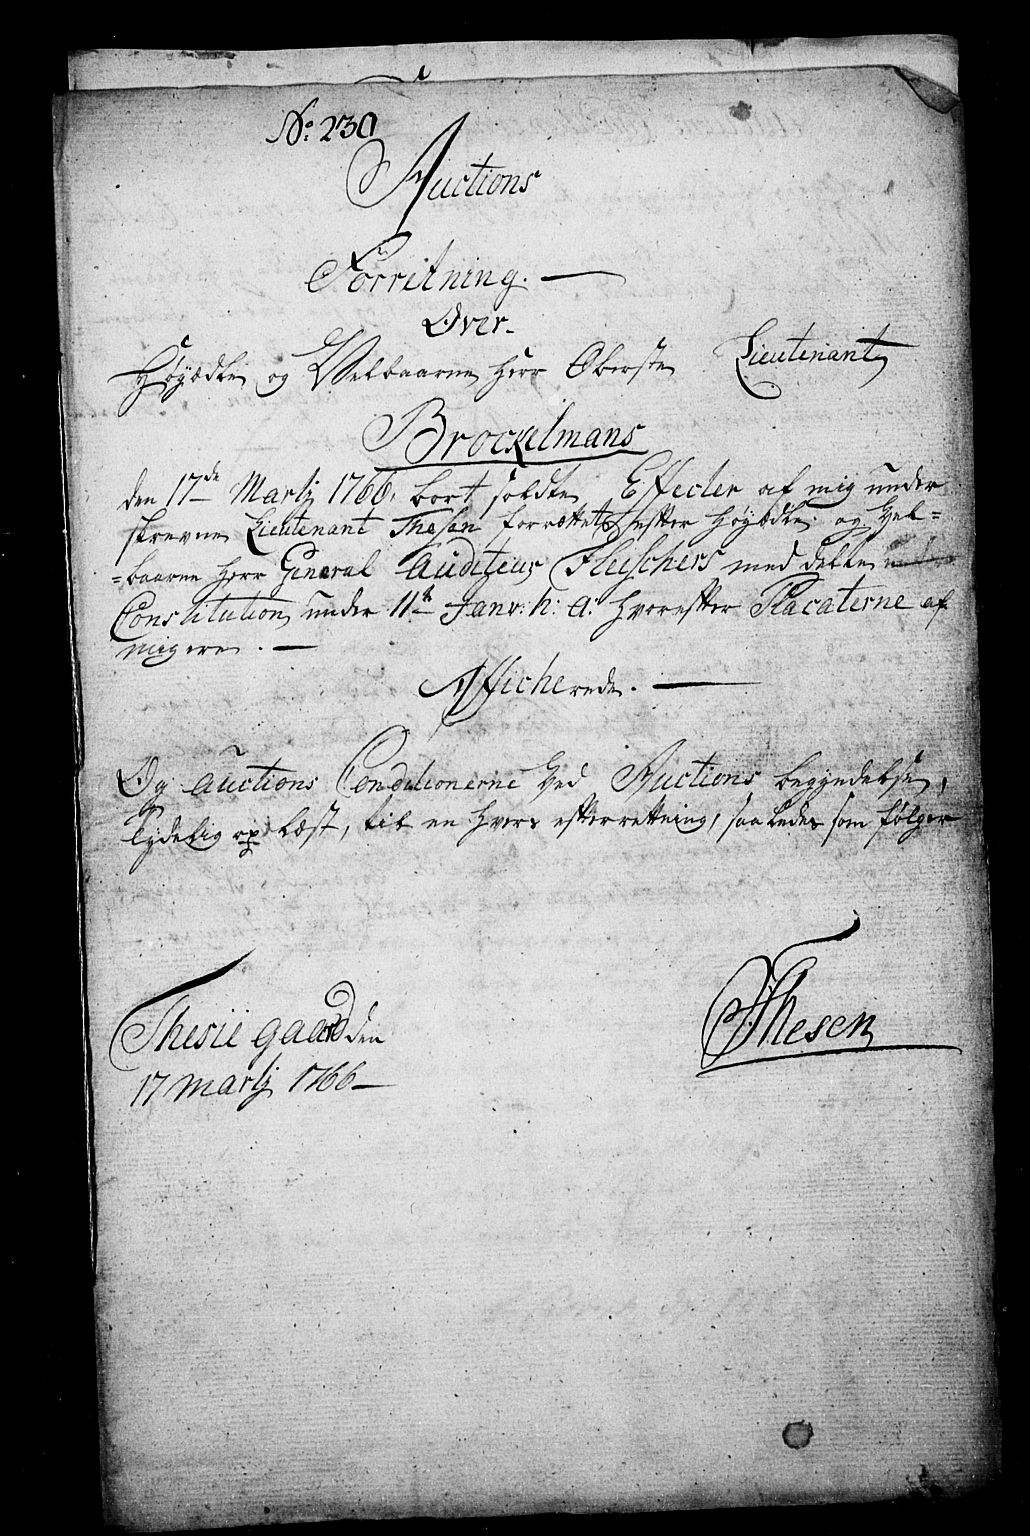 No: 230
Auctions
Forretning. —
Over
Høyædle og Velbaarne Herr Oberste Lieutenant
Brockelmans
den 17de Martij 1766, bort soldte Effecter af mig under
skrevne Lieutenant Thesen forrættet, efter Høyædle og Vel=
=baarne Herr General Auditeur Fleischers med deelte
Constitution, under 11te Janv: h: a: hvorefter Placaterne af
mig ere. —
Afficherede. —
Og Auctions Conditionerne ved Auctions begyndelse,
lydelig op læst, til en hvers efterretning, saaledes som følger
Thesen
Thesiegaard den
17 Martij 1766 —